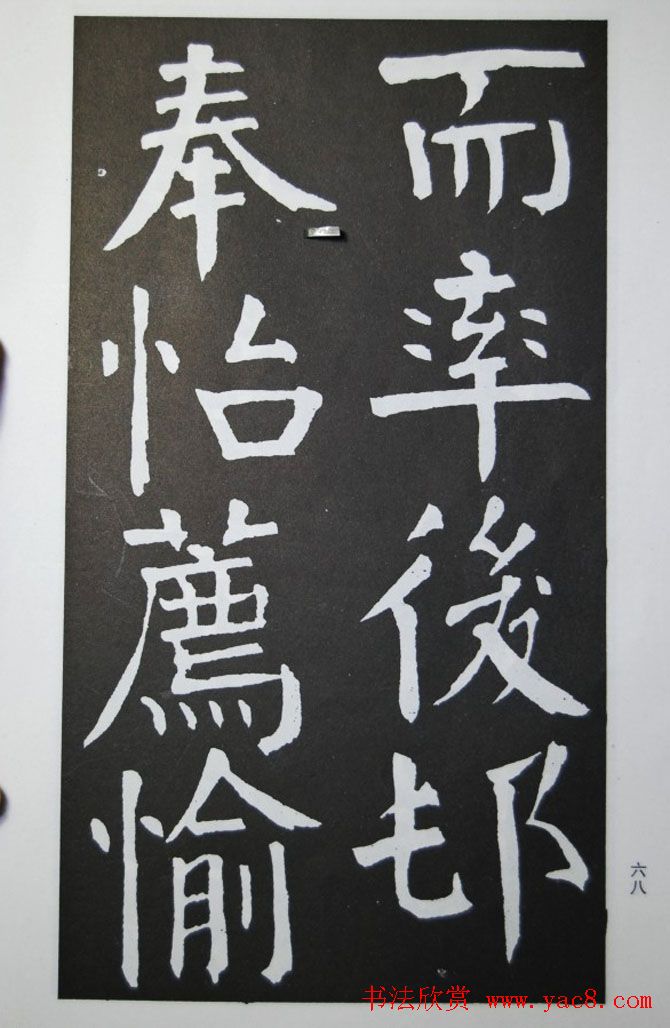 而率後邨
奉怡薦愉
六八
书法欣赏 www.yac8.com